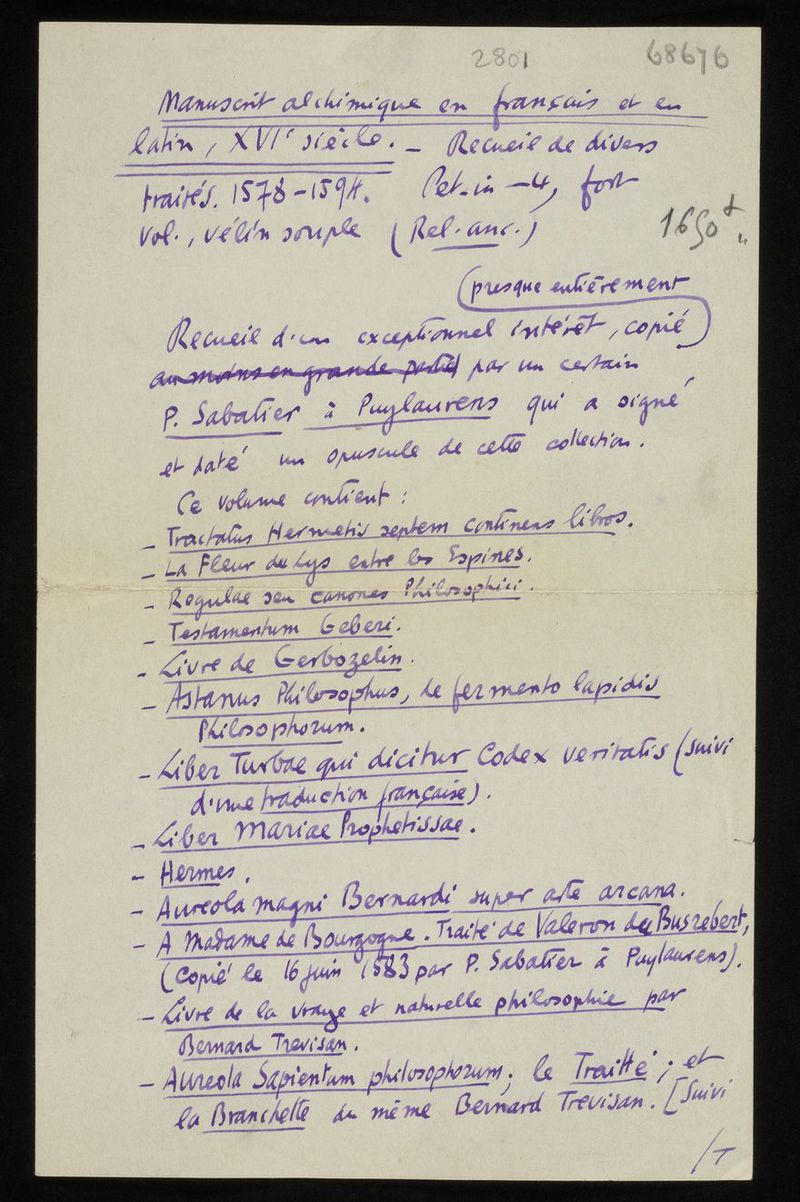 2801 68676
Manuscrit alchimique en français et en
latin, XVIe siècle. _ Recueil de divers
traités. 1578-1594. Pet. in-4, fort
vol., vélin souple (Rel. anc.)
1650
(presque entièrement
Recueil d'un exceptionnel intérêt, copié)
au moins en grande partie par un certain
P. Sabatier à Puylaurens qui a signé
et daté un opuscule de cette collection.
Ce volume contient :
_ Tractatus Hermetis septem continens libros.
_ La Fleur du Lys entre les Espines.
_ Regulae seu canones Philosophici.
_ Testamentum Geberi.
_ Livre de Gerbozelin.
_ Astanus Philosophus, de fermento lapidis
Philosophorum.
_ Liber Turbae qui dicitur Codex veritatis (suivi
d'une traduction française).
_ Liber Mariae Prophetissae.
_ Hermes.
_ Aureola magni Bernardi super arte arcana.
_ A Madame de Bourgogne. Traité de Valeron de Busrebert,
(copié le 16 juin 1583 par P. Sabatier à Puylaurens).
_ Livre de la vraye et naturelle philosophie par
Bernard Trevisan.
_ Aureola Sapientum philosophorum; le Traitté; et
la Branchette du même Bernard Trevisan. [Suivi